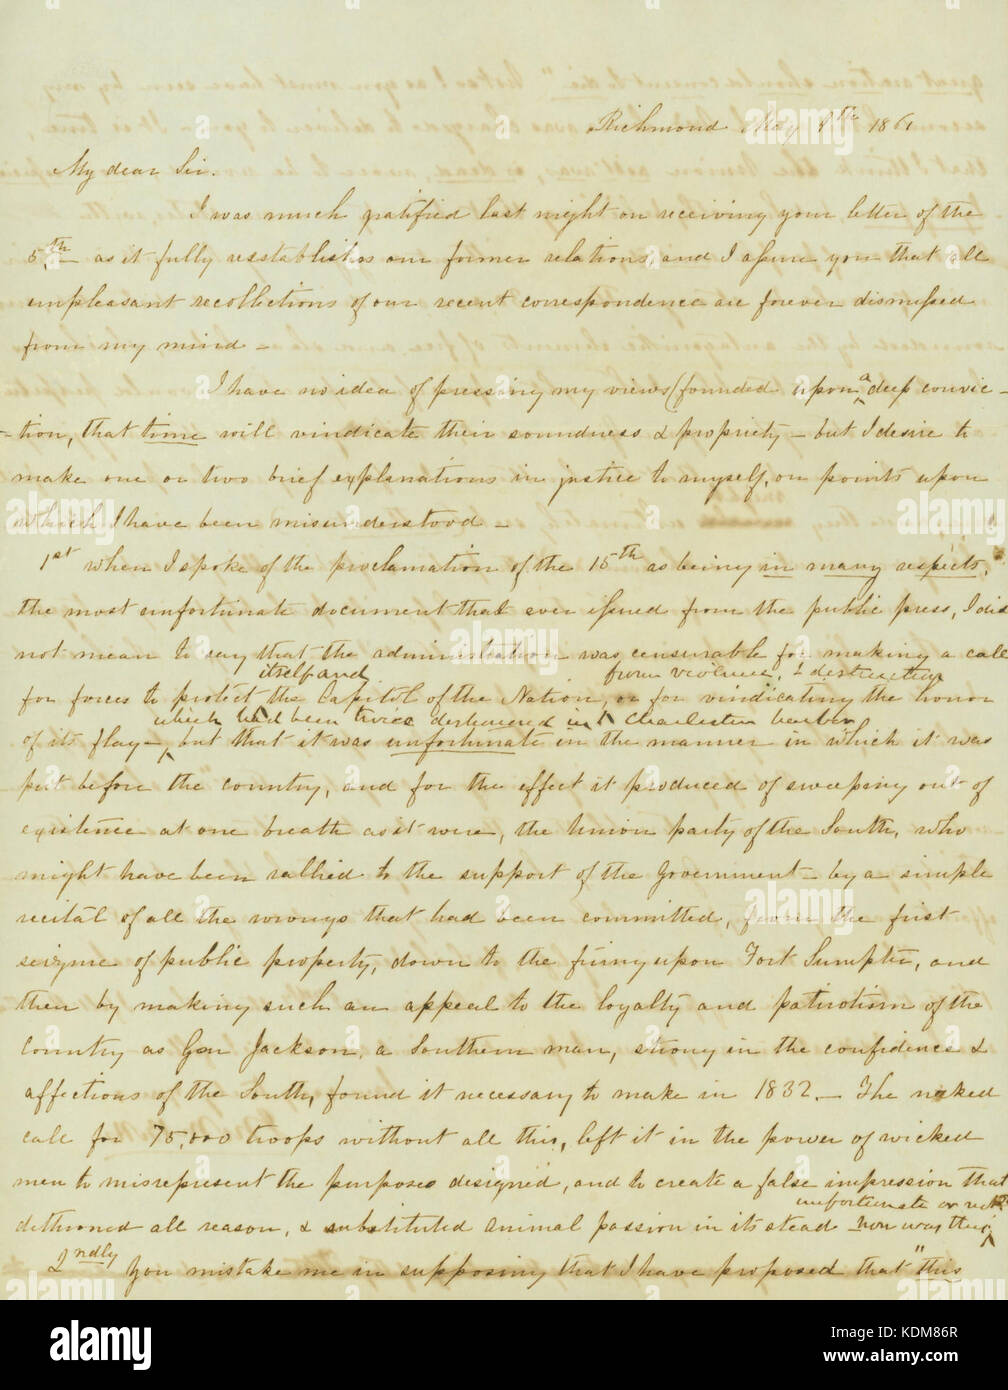 Richmond May 9th 1861
My dear Sir.
I was much gratified last night on receiving your letter of the
5th as it fully reestablishes our former relations, and I assure you that all
unpleasant recollections of our recent correspondence are forever dismissed
from my mind –
I have no idea of pressing my views (founded upon a deep convic –
– tion, that time will vindicate their soundness & propriety – but I desire to
make one or two brief explanations in justice to myself, on points upon
which I have been misunderstood –
1st when I spoke of the proclamation of the 15th as being in many respects,
the most unfortunate document that ever issued from the public press, I did
not mean to say that the administration was censurable for making a call
for forces to protect itself and the Capitol of the Nation, from violence, & destruction or for vindicating the honor
of its flag –, which had been twice dishonored in Charleston harbor but that it was unfortunate in the manner in which it was
put before the country, and for the effect it produced of sweeping out of
existence at one breath as it were, the Union party of the South, who
might have been rallied to the support of the Government – by a simple
recital of all the wrongs that had been committed, from the first
seizure of public property, down to the firing upon Fort Sumpter, and
then by making such an appeal to the loyalty and patriotism of the
Country as Gen Jackson, a Southern man, strong in the confidence &
affections of the South, found it necessary to make in 1832. – The naked
call for 75,000 troops without all this, left it in the power of wicked
men to misrepresent the purposes designed, and to create a false impression that
dethroned all reason, & substituted animal passion in its stead unfortunate or
2ndly You mistake me in supposing that I have proposed that "this
alamy
Image ID: KDM86R
www.alamy.com